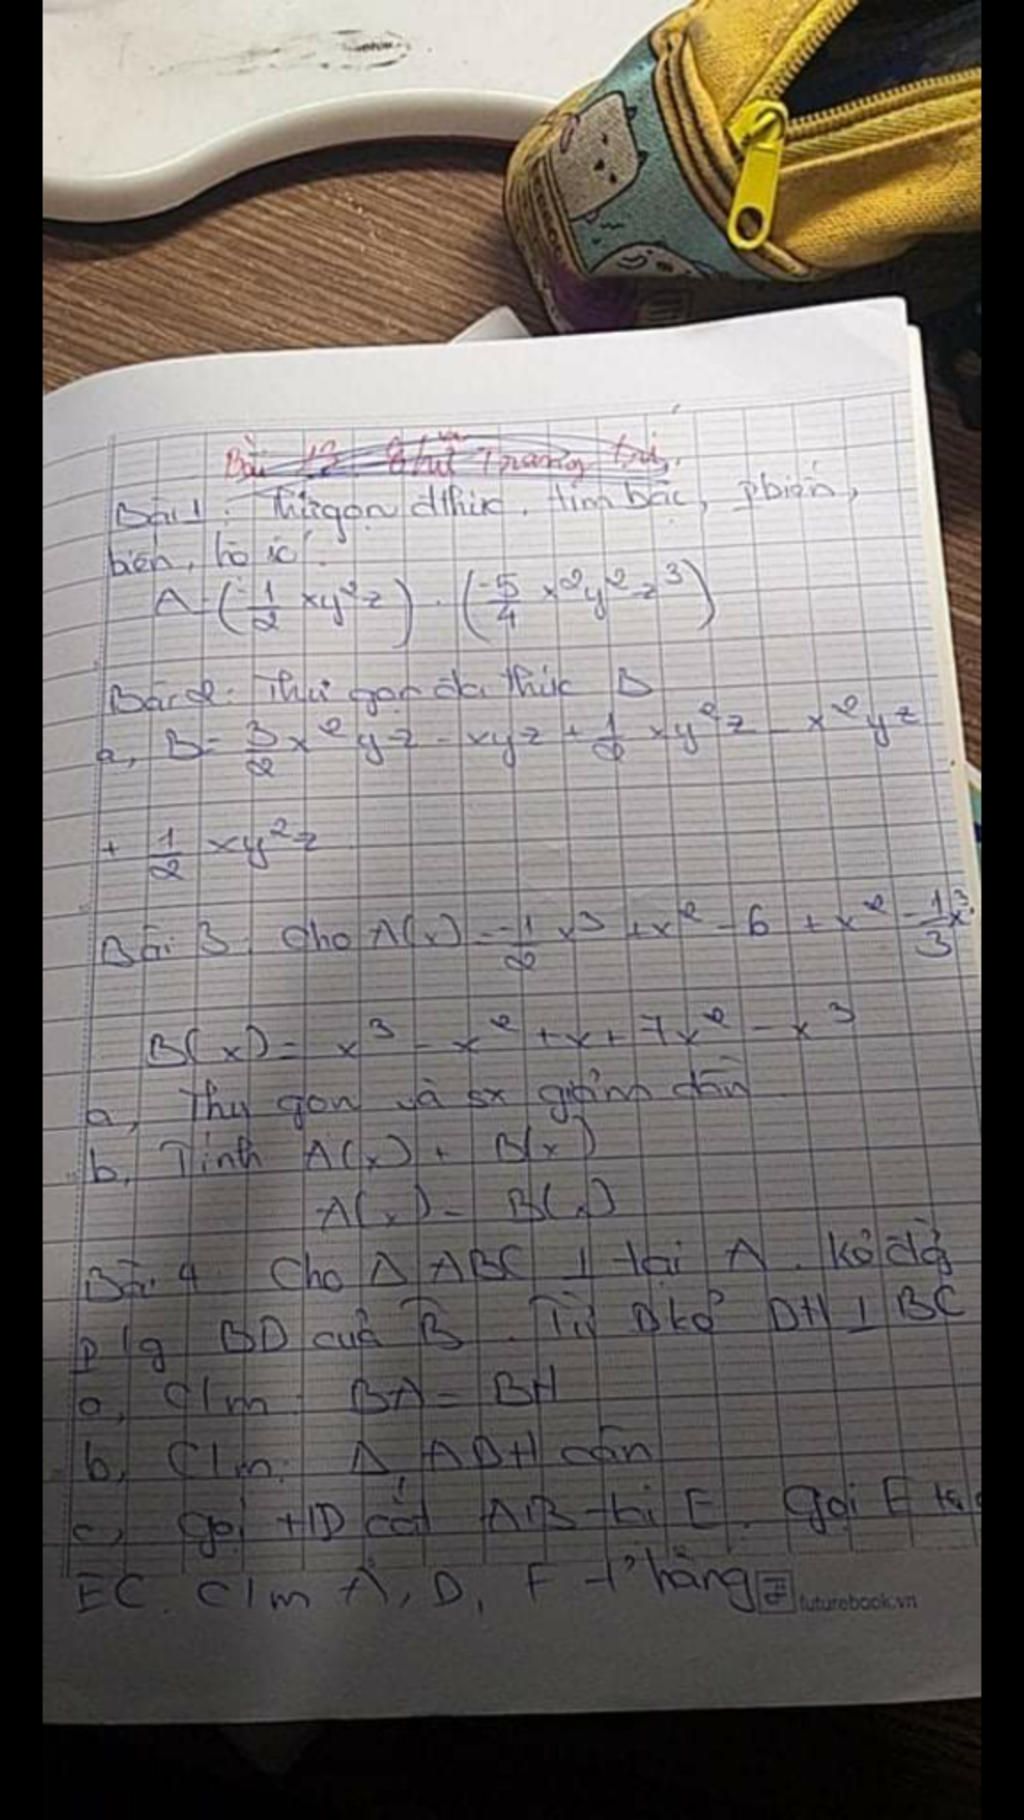 Bài 13
Bài 1: Thu gọn đthức, tìm bậc, pbiến,
biến,
A = (-1/2 xy²z) . (-5/4 x²y²z³)
Bài 2: Thu gọn đa thức B
a, B = 3/2 x²yz - xyz + 1/2 xy²z - x²yz
+ 1/2 xy²z
Bài 3. Cho A(x) = -1/2 x³ + x² - 6 + x² - 1/3 x³
B(x) = x³ - x² + x + 7x² - x³
a, Thu gọn và sx giảm dần
b, Tính A(x) + B(x)
A(x) - B(x)
Bài 4 Cho Δ ABC ⊥ tại A. kẻ
p/g BD của B̂. Từ D kẻ DH ⊥ BC
a, C/m: BA = BH
b, C/m: Δ ADH cân
c, gọi HD cắt AB tại E. gọi F
EC. C/m A, D, F thẳng
futurebook.vn